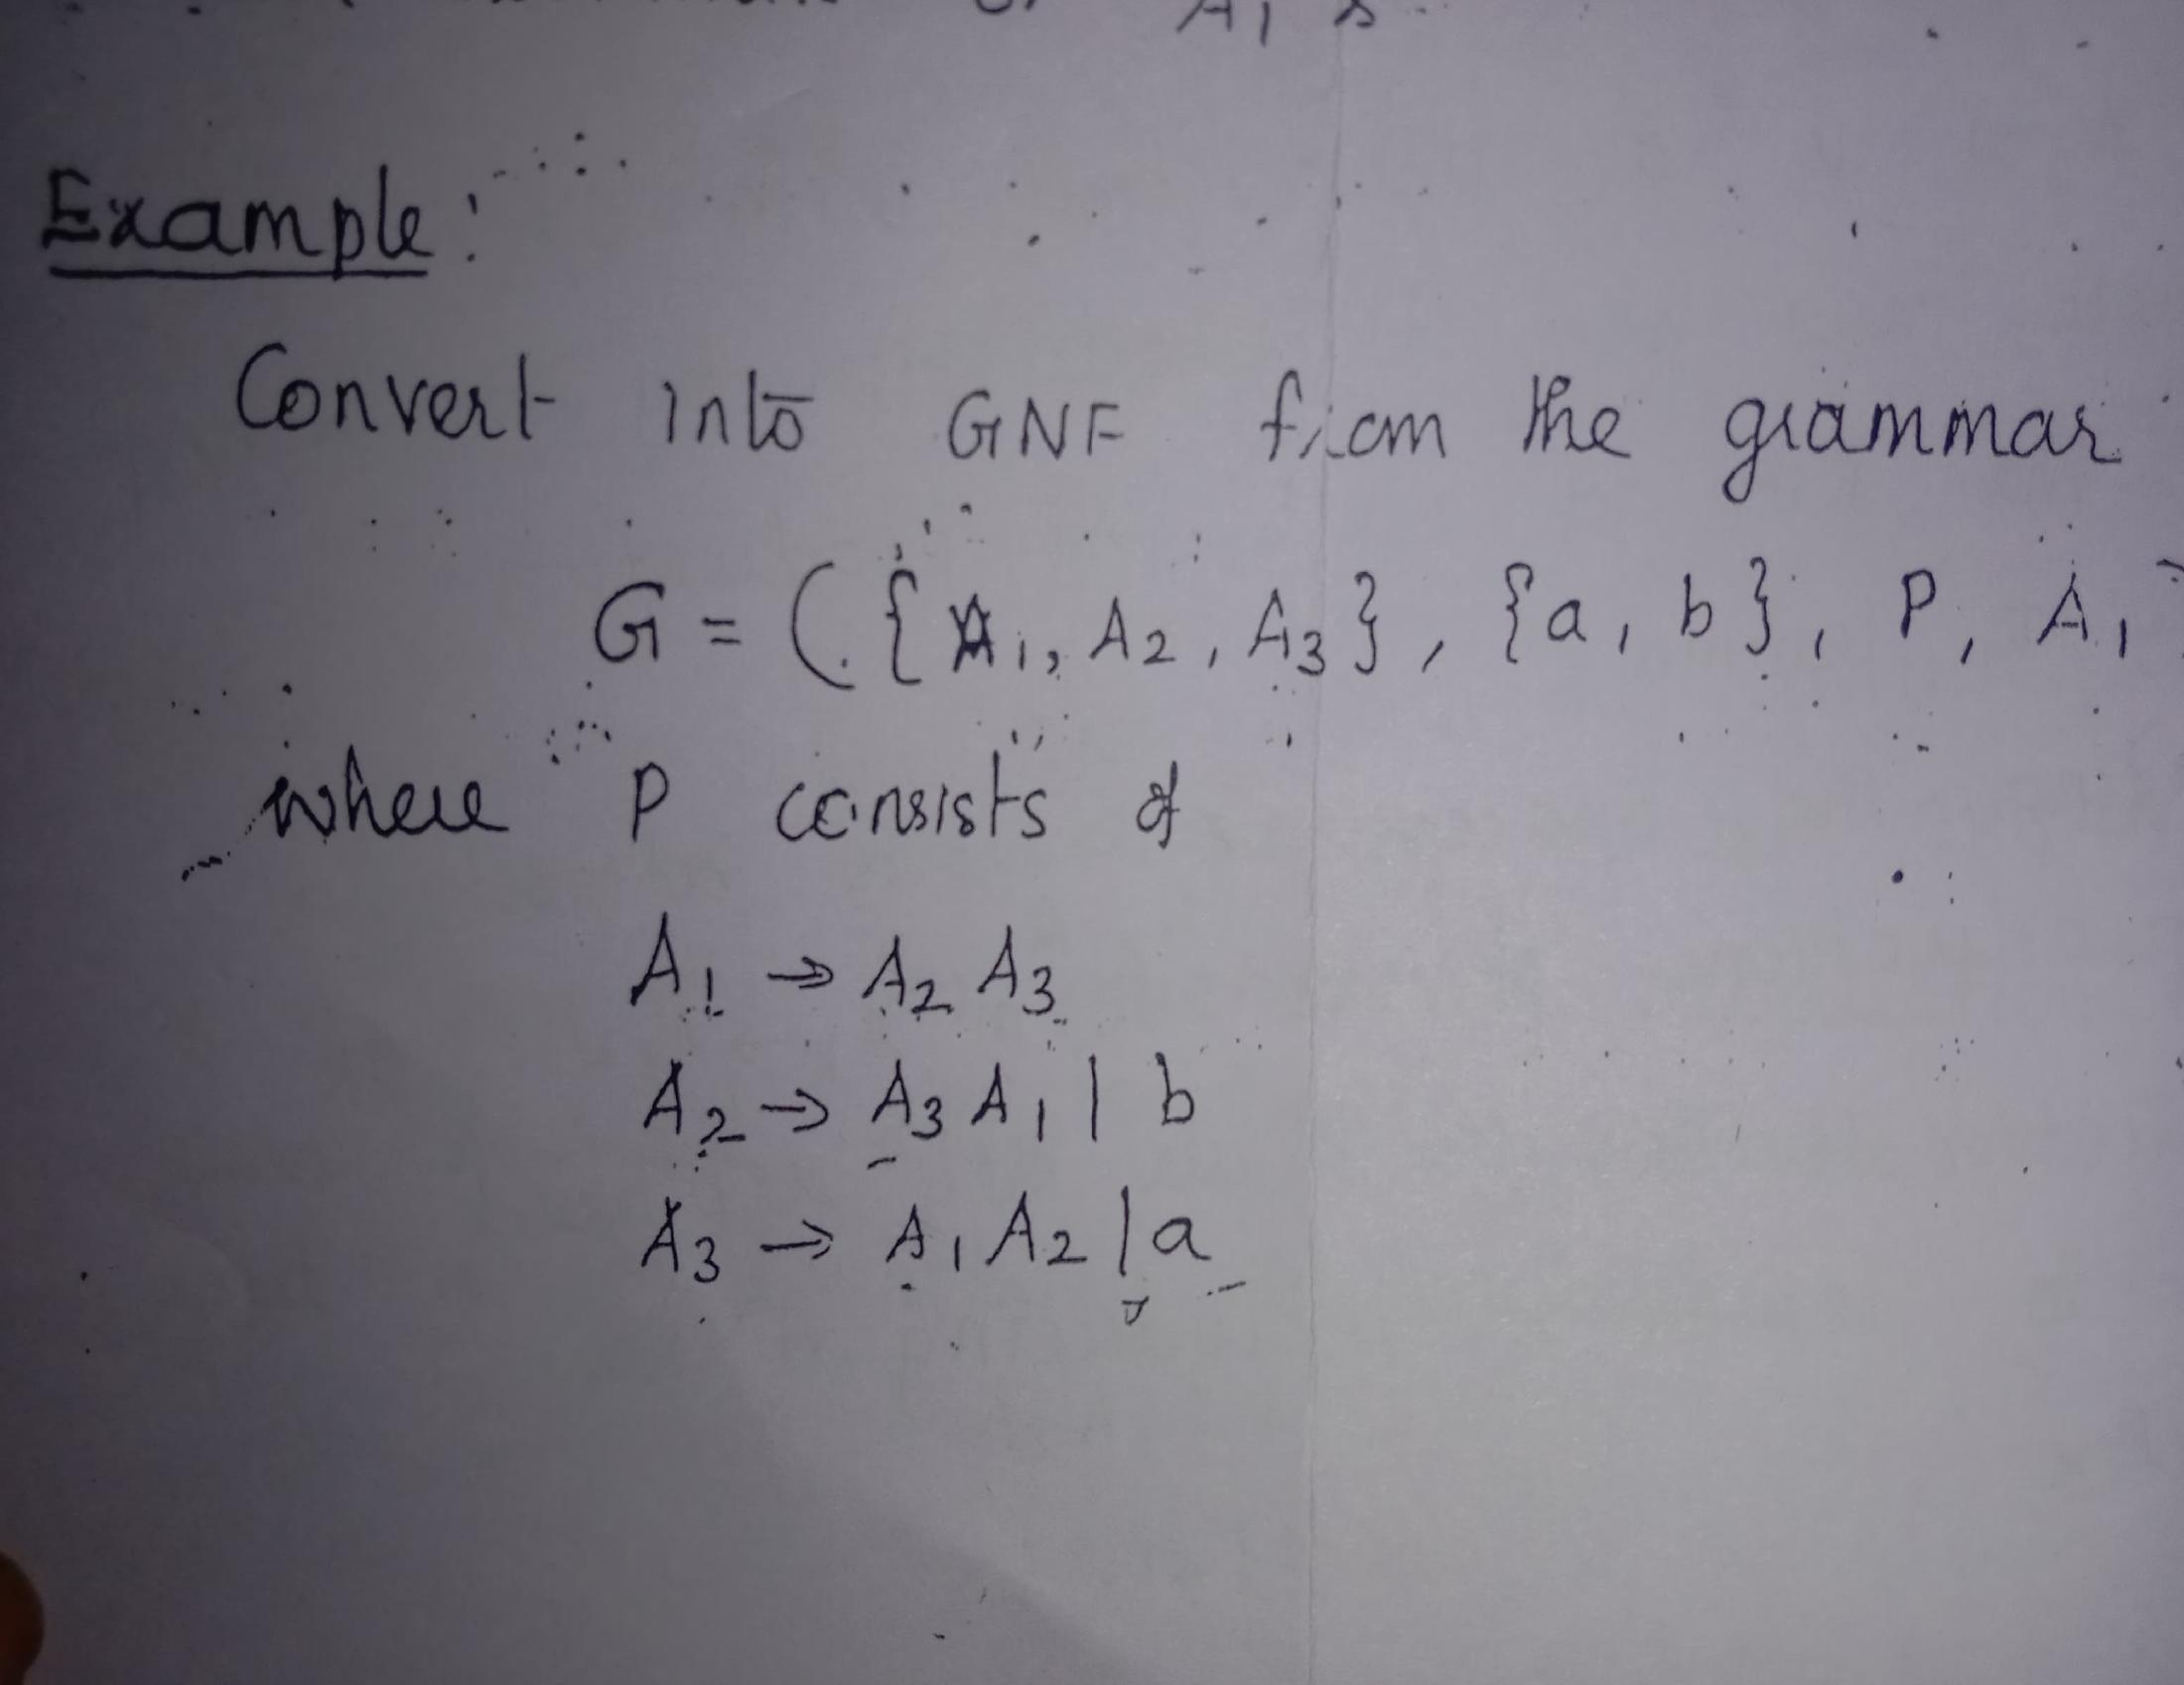 A1 s
Example:
Convert into GNF from the grammar
G = ({A1, A2, A3}, {a, b}, P, A1)
where P consists of
A1 → A2 A3
A2 → A3 A1 | b
A3 → A1 A2 | a